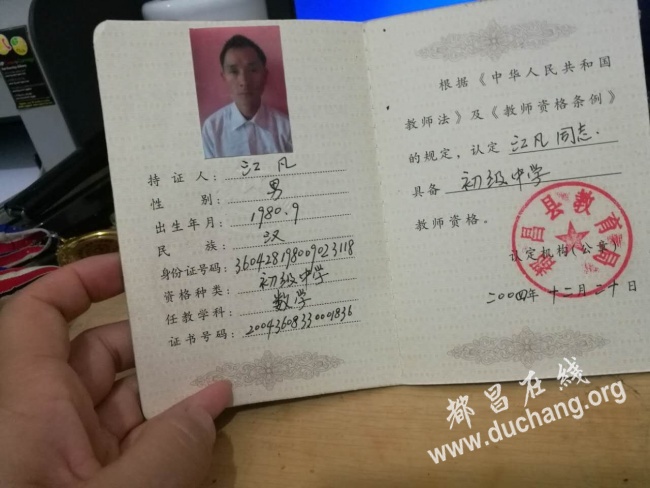 持证人：江凡
性别：男
出生年月：1980.9
民族：汉
身份证号码：360428198009023118
资格种类：初级中学
任教学科：数学
证书号码：20043608330001836
根据《中华人民共和国
教师法》及《教师资格条例》
的规定，认定 江凡同志.
具备 初级中学
教师资格。
都昌县教育局
认定机构(公章)
二00四年十二月二十日
都昌在线
www.duchang.org